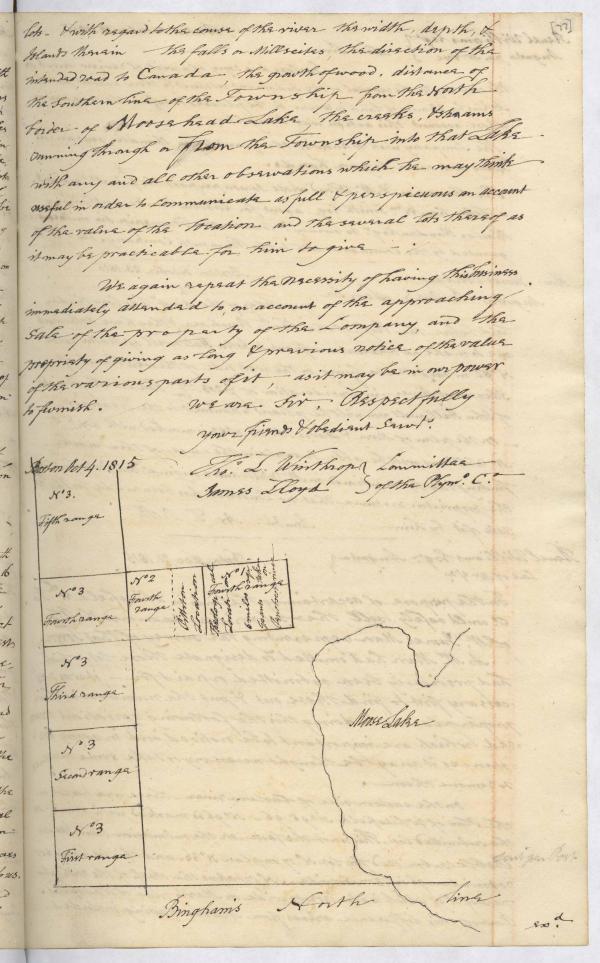 [77]
lots - & with regard to the course of the river the width, depth, &
Islands therein - the falls or Millseites, the direction of the
intended road to Canada, the growth of wood, distance of
the Southern line of the Township from the North
border of Moosehead Lake the creeks, & streams
running through or from the Township into that Lake
with any and all other observations which he may think
useful in order to communicate as full & perspicuous an account
of the value of the location and the several lots thereof as
it may be practicable for him to give - .
We again repeat the necessity of having this business
immediately attended to, on account of the approaching
Sale of the property of the Company, and the
propriety of giving as long & previous notice of the value
of the various parts of it, as it may be in our power
to furnish. We are Sir, Respectfully
your friends & obedient Servts.
Boston Oct 4. 1815 Tho. L. Winthrop } Committee
James Lloyd } of the Plymo. Co.
No 3.
Fifth range
No 3
Fourth range
No 2
Fourth
range
Location
No 1
Fourth range
No 3
Third range
No 3
Second range
No 3
First range
Moose Lake
Bingham's North line
exd.